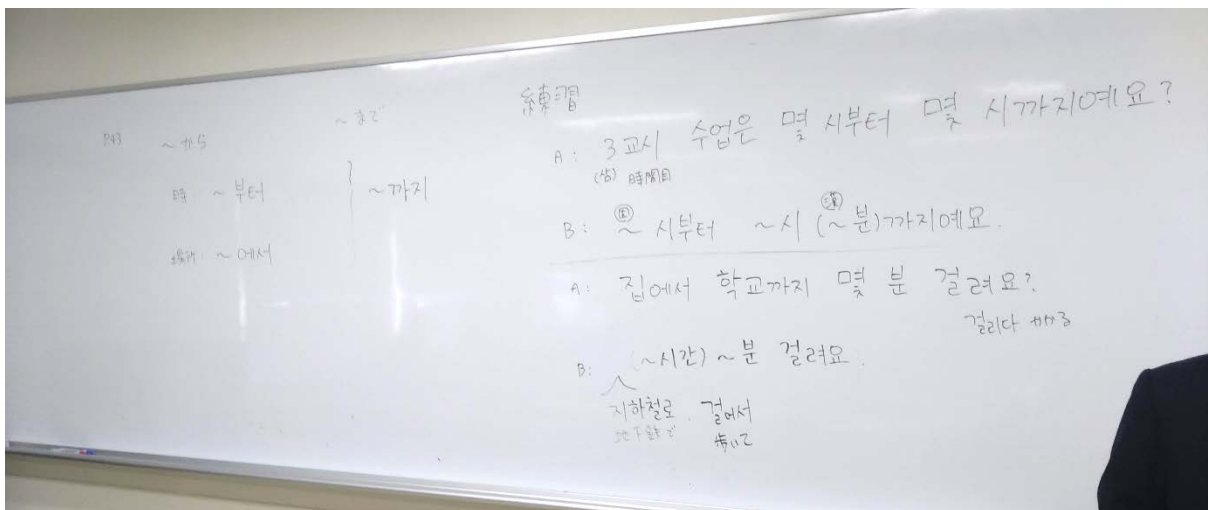 P43 ~から ~まで
時 ~부터 } ~까지
場所: ~에서
練習
A: 3교시 수업은 몇 시부터 몇 시까지예요?
時間目
B: ~시부터 ~시 (~분)까지예요.
固 漢
A: 집에서 학교까지 몇 분 걸려요?
걸리다 かかる
B: (~시간) ~분 걸려요.
지하철로. 걸어서
地下鉄で 歩いて